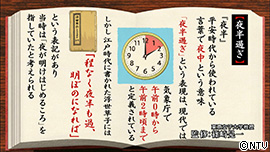 【夜半過ぎ】
平安時代から使われている
言葉で夜中という意味
「夜半過ぎ」という表現は、現代では
気象庁で
午前0時から
午前2時頃まで
と定義されている
しかし 江戸時代に書かれた浮世草子には
「程なく夜半も過、
明ぼのになれば」
という表記があり
当時は「夜が明けはじめるころ」を
指していたと考えられる
©NTV